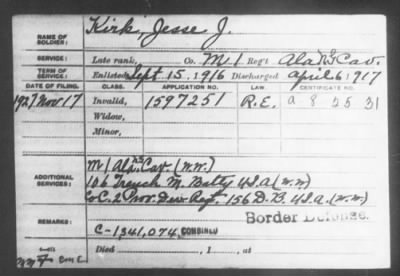 NAME OF SOLDIER: Kirk, Jesse J.
SERVICE: Late rank, Co. M 1 Reg't Ala N.G. Cav.
TERM OF SERVICE: Enlisted Sept. 15, 1916 Discharged April 6, 1917
DATE OF FILING. CLASS. APPLICATION NO. LAW. CERTIFICATE NO.
1927 Nov 17 Invalid, 1597251 R.E. a 8 25 31
Widow,
Minor,
ADDITIONAL SERVICES: M 1 Ala. Cav. (W.W.)
106 Trench M. Batty U.S.A (W.W)
Co C. 2 Prov. Dev Reg. 156 D.B. U.S.A. (W.W.)
Border Defense.
REMARKS: C-1341,074, COMBINED
Died , 1 , at